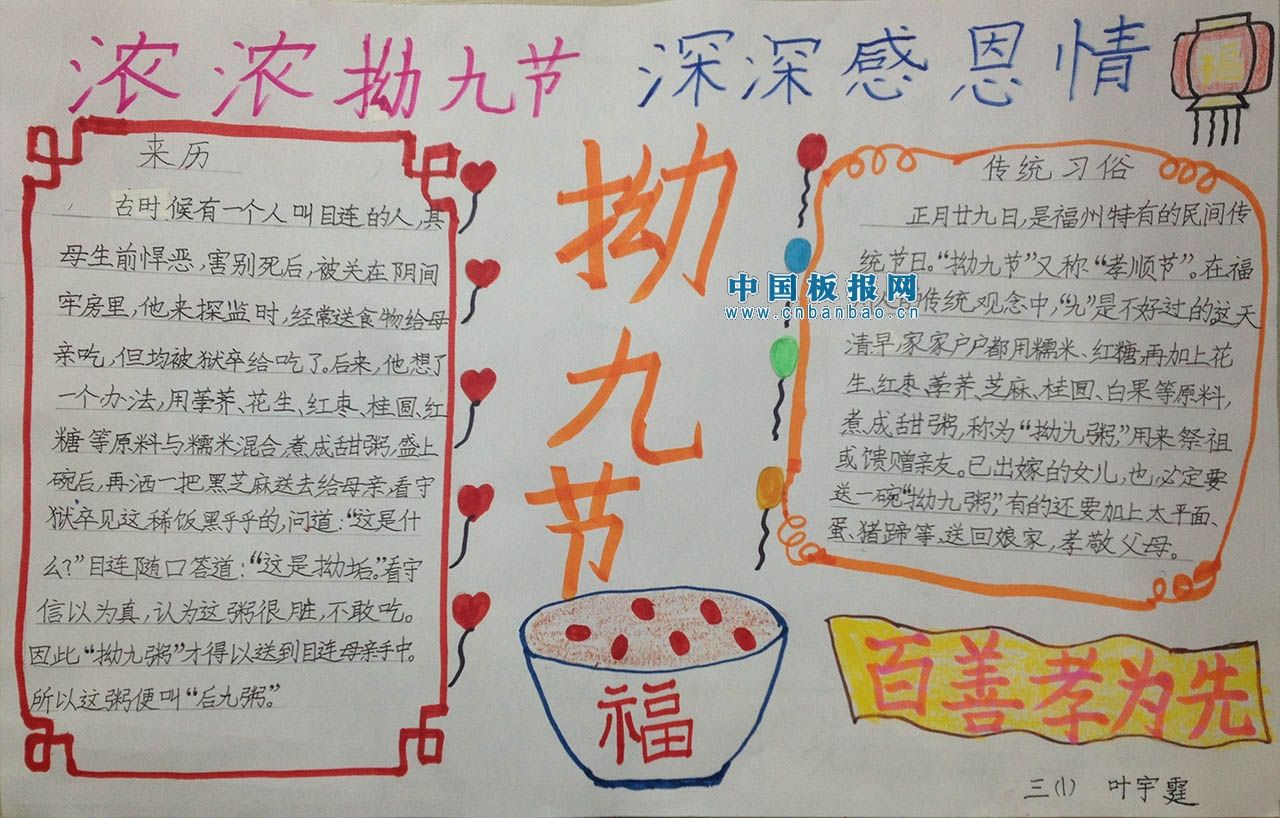 浓浓拗九节 深深感恩情
福
来历
古时候有一个人叫目连的人,其
母生前悍恶,害别死后,被关在阴间
牢房里,他来探监时,经常送食物给母
亲吃,但均被狱卒给吃了。后来,他想了
一个办法,用荸荠、花生、红枣、桂圆、红
糖等原料与糯米混合,煮成甜粥,盛上
碗后,再洒一把黑芝麻送去给母亲,看守
狱卒见这稀饭黑乎乎的,问道:“这是什
么?”目连随口答道:“这是拗垢。”看守
信以为真,认为这粥很脏,不敢吃。
因此“拗九粥”才得以送到目连母亲手中。
所以这粥便叫“后九粥”。
拗
九
节
中国板报网
www.cnbanbao.cn
福
传统习俗
正月廿九日,是福州特有的民间传
统节日。“拗九节”又称“孝顺节”。在福
传统观念中,“九”是不好过的这天
清早,家家户户都用糯米、红糖,再加上花
生、红枣、荸荠、芝麻、桂圆、白果等原料,
煮成甜粥,称为“拗九粥”,用来祭祖
或馈赠亲友。已出嫁的女儿,也必定要
送一碗“拗九粥”,有的还要加上太平面、
蛋、猪蹄等,送回娘家,孝敬父母。
百善孝为先
三(1) 叶宇霆